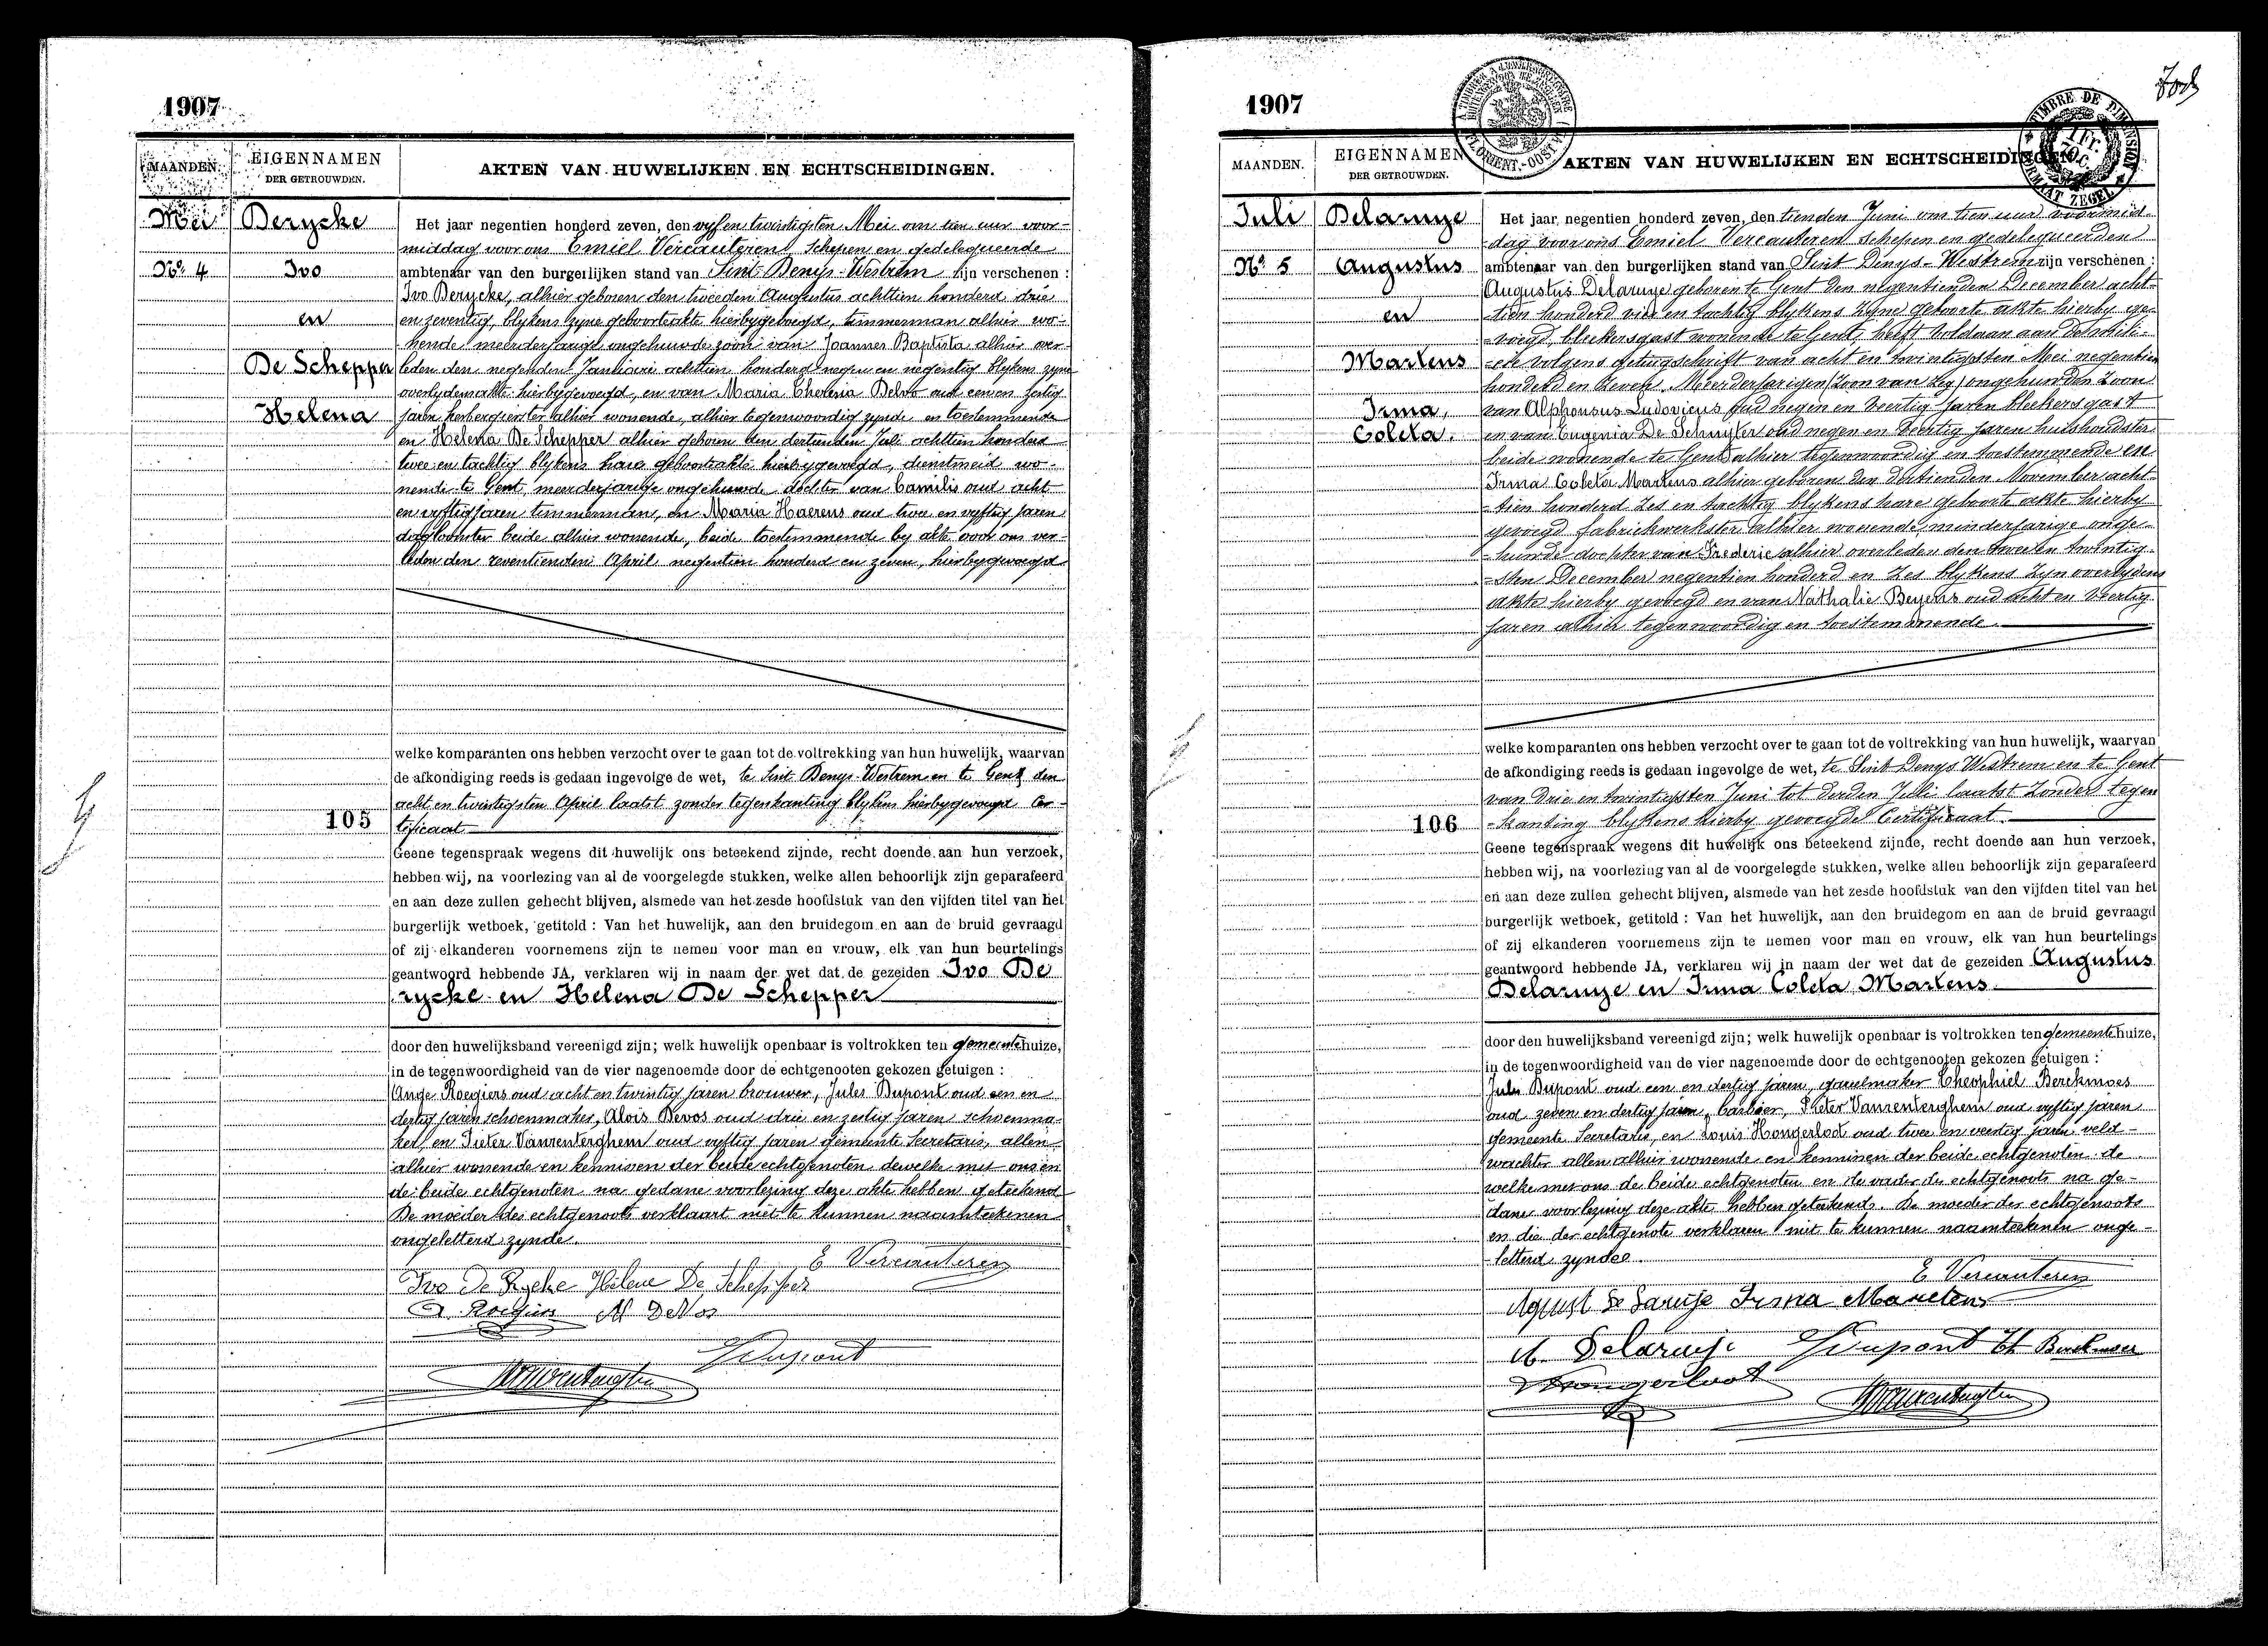 1907
MAANDEN.
EIGENNAMEN
DER GETROUWDEN.
AKTEN VAN HUWELIJKEN EN ECHTSCHEIDINGEN.
Mei
Derycke
Nº 4
Ivo
en
De Schepper
Helena
105
Het jaar negentien honderd zeven, den vyf en twintigsten Mei om tien uur voor-
middag voor ons Emiel Vercauteren, Schepen en gedelegueerde
ambtenaar van den burgerlijken stand van Sint-Denys-Westrem zijn verschenen :
Ivo Derycke, alhier geboren den tweeden Augustus achttien honderd drie
en zeventig, blykens zyne geboorteakte hierbygevoegd, timmerman alhier wo-
nende meerderjarige ongehuwde zoon van Joannes Baptista alhier over-
leden den negenden Januari achttien honderd negen en negentig blykens zyne
overlydensakte hierbygevoegd, en van Maria Theresia Delvo oud een en zestig
jaren herbergierster alhier wonende, alhier tegenwoordig zynde en toestemmende
en Helena De Schepper alhier geboren den dertienden Juli achttien honderd
twee en tachtig blykens hare geboorteakte hierbygevoegd, dienstmeid wo-
nende te Gent, meerderjarige ongehuwde dochter van Camilis oud acht
en vyftig jaren timmerman, en Maria Haerens oud twee en vyftig jaren
dagloonster beide alhier wonende, beide toestemmende by akte voor ons ver-
leden den zeventienden April negentien honderd en zeven, hierbygevoegd
welke komparanten ons hebben verzocht over te gaan tot de voltrekking van hun huwelijk, waarvan
de afkondiging reeds is gedaan ingevolge de wet, te Sint Denys-Westrem en te Gent den
acht en twintigsten April laatst zonder tegenkanting blykens hierbygevoegd Cer-
tificaat
Geene tegenspraak wegens dit huwelijk ons beteekend zijnde, recht doende aan hun verzoek,
hebben wij, na voorlezing van al de voorgelegde stukken, welke allen behoorlijk zijn geparafeerd
en aan deze zullen gehecht blijven, alsmede van het zesde hoofdstuk van den vijfden titel van het
burgerlijk wetboek, getiteld : Van het huwelijk, aan den bruidegom en aan de bruid gevraagd
of zij elkanderen voornemens zijn te nemen voor man en vrouw, elk van hun beurtelings
geantwoord hebbende JA, verklaren wij in naam der wet dat de gezeiden Ivo De
rycke en Helena De Schepper
door den huwelijksband vereenigd zijn; welk huwelijk openbaar is voltrokken ten gemeentehuize,
in de tegenwoordigheid van de vier nagenoemde door de echtgenooten gekozen getuigen :
Ange Roegiers oud acht en twintig jaren brouwer, Jules Dupont oud een en
dertig jaren schoenmaker, Alois Devos oud drie en zestig jaren schoenma-
ker, en Pieter Vanrenterghem oud vyftig jaren gemeente Secretaris, allen
alhier wonende en kennissen der beide echtgenoten dewelke met ons en
de beide echtgenoten na gedane voorlezing deze akte hebben geteekend
De moeder des echtgenoots verklaart niet te kunnen naamteekenen
ongeletterd zynde.
E Vercauteren
Ivo De Rycke Helene De Schepper
A. Roegiers Al DeVos
J Dupont
PVanrenterghem
1907
MAANDEN.
EIGENNAMEN
DER GETROUWDEN.
AKTEN VAN HUWELIJKEN EN ECHTSCHEIDINGEN.
TIMBRE DE DIMENSION
FORMAAT ZEGEL
Juli
Delaruye
Nº 5
Augustus
en
Martens
Irma,
Coleta.
106
Het jaar negentien honderd zeven, den tienden Juni om tien uur voormid-
dag voor ons Emiel Vercauteren schepen en gedelegueerden
ambtenaar van den burgerlijken stand van Sint Denys-Westrem zijn verschenen :
Augustus Delaruye geboren te Gent den negentienden December acht-
-tien honderd vier en tachtig blykens zyne geboorte akte hierby ge-
-voegd, bleekersgast wonende te Gent, heeft voldaan aan de mili-
-cie volgens getuigschrift van acht en twintigsten Mei negentien
honderd en zeven. Meerderjarigen (Zoon van zeg) ongehuwden Zoon
van Alphonsus Ludovicus oud negen en veertig jaren bleekersgast
en van Eugenia De Schuyter oud negen en veertig jaren huishoudster
beide wonende te Gent alhier tegenwoordig en toestemmende en
Irma Coleta Martens alhier geboren den dertienden November acht-
-tien honderd zes en tachtig blykens hare geboorte akte hierby
gevoegd fabriekwerkster alhier wonende minderjarige onge-
-huwde dochter van Frederic alhier overleden den twee en twintig-
-sten December negentien honderd en zes blykens zyn overlydens
akte hierby gevoegd en van Nathalie Beyens oud acht en veertig
jaren alhier tegenwoordig en toestemmende.
welke komparanten ons hebben verzocht over te gaan tot de voltrekking van hun huwelijk, waarvan
de afkondiging reeds is gedaan ingevolge de wet, te Sint Denys Westrem en te Gent
van drie en twintigsten Juni tot derden Juli laatst zonder tegen
-kanting blykens hierby gevoegde Certificaat.
Geene tegenspraak wegens dit huwelijk ons beteekend zijnde, recht doende aan hun verzoek,
hebben wij, na voorlezing van al de voorgelegde stukken, welke allen behoorlijk zijn geparafeerd
en aan deze zullen gehecht blijven, alsmede van het zesde hoofdstuk van den vijfden titel van het
burgerlijk wetboek, getiteld : Van het huwelijk, aan den bruidegom en aan de bruid gevraagd
of zij elkanderen voornemens zijn te nemen voor man en vrouw, elk van hun beurtelings
geantwoord hebbende JA, verklaren wij in naam der wet dat de gezeiden Augustus
Delaruye en Irma Coleta Martens.
door den huwelijksband vereenigd zijn; welk huwelijk openbaar is voltrokken ten gemeentehuize,
in de tegenwoordigheid van de vier nagenoemde door de echtgenooten gekozen getuigen :
Jules Dupont oud een en dertig jaren, gareelmaker Theophiel Berckmoes
oud zeven en dertig jaren, barbier, Pieter Vanrenterghem oud vyftig jaren
gemeente Secretaris, en Louis Hongerloot oud twee en veertig jaren veld-
wachter allen alhier wonende en kennissen der beide echtgenoten de
welke met ons de beide echtgenoten en de vader des echtgenoots na ge-
dane voorlezing deze akte hebben geteekend. De moeder des echtgenoots
en die der echtgenote verklaren niet te kunnen naamteekenen onge-
letterd zynde.
E Vercauteren
Agust De Laruye Irma Martens
A. Delaruye J Dupont Th Berckmoes
Hongerloot
PVanrenterghem